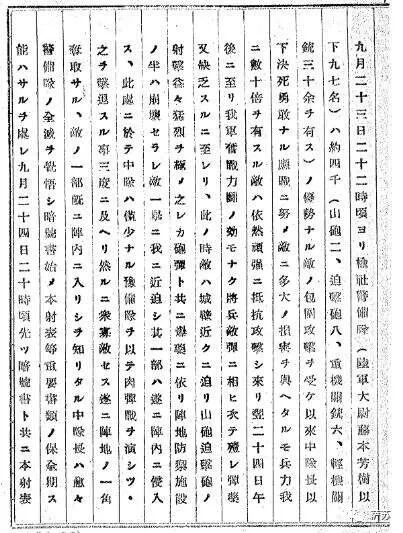 九月二十三日二十二時頃ヨリ檢社警備隊(陸軍大尉藤本芳樹以
下九七名)ハ約四千(山砲二、迫撃砲八、重機關銃六、輕機關
銃三十余ヲ有ス)ノ優勢ナル敵ノ包圍攻撃ヲ受ケ以來中隊長以
下決死勇敢ナル應戰ニ努メ敵ニ多大ノ損害ヲ與ヘタルモ兵力我
ニ數十倍ヲ有スル敵ハ依然頑强ニ抵抗攻撃シ來リ翌二十四日午
後ニ至リ我軍奮戰力鬪ノ効モナク將兵敵彈ニ相ヒ次テ殪レ彈藥
又缺乏スルニ至レリ、此ノ時敵ハ城壁近クニ迫リ山砲迫撃砲ノ
射撃益々猛烈ヲ極メ之レカ砲彈ト共ニ爆藥ニ依リ陣地防禦施設
ノ半ハ崩壞セラレ敵一擧ニ我ニ近迫シ其一部ハ遂ニ陣內ニ侵入
ス、此處ニ於テ中隊ハ僅少ナル豫備隊ヲ以テ肉彈戰ヲ演シツヽ
之ヲ撃退スル事三度ニ及ヘリ然ルニ衆寡敵セス遂ニ陣地ノ一角
奪取サル、敵ノ一部旣ニ陣內ニ入リシヲ知リタル中隊長ハ愈々
警備隊ノ全滅ヲ覺悟シ暗號書始メ本射表等重要書類ノ保全期ス
能ハサルヲ慮レ九月二十四日二十時頃先ツ暗號書ト共ニ本射表